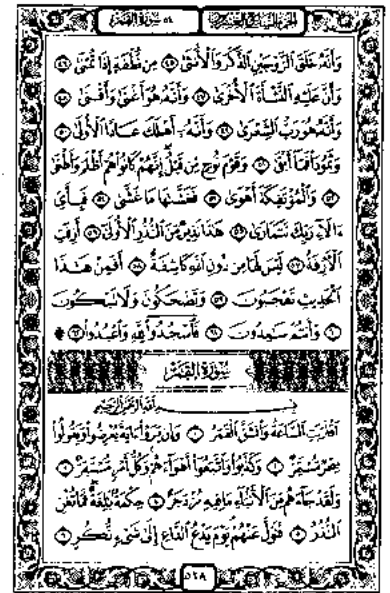 الجزء السابع والعشرون
٥٤ سورة القمر
وَأَنَّهُ خَلَقَ الزَّوْجَيْنِ الذَّكَرَ وَالْأُنثَىٰ ٤٥ مِن نُّطْفَةٍ إِذَا تُمْنَىٰ ٤٦
وَأَنَّ عَلَيْهِ النَّشْأَةَ الْأُخْرَىٰ ٤٧ وَأَنَّهُ هُوَ أَغْنَىٰ وَأَقْنَىٰ ٤٨
وَأَنَّهُ هُوَ رَبُّ الشِّعْرَىٰ ٤٩ وَأَنَّهُ أَهْلَكَ عَادًا الْأُولَىٰ ٥٠
وَثَمُودَا فَمَا أَبْقَىٰ ٥١ وَقَوْمَ نُوحٍ مِّن قَبْلُ إِنَّهُمْ كَانُوا هُمْ أَظْلَمَ وَأَطْغَىٰ
٥٢ وَالْمُؤْتَفِكَةَ أَهْوَىٰ ٥٣ فَغَشَّىٰهَا مَا غَشَّىٰ ٥٤ فَبِأَيِّ
ءَالَاءِ رَبِّكَ تَتَمَارَىٰ ٥٥ هَٰذَا نَذِيرٌ مِّنَ النُّذُرِ الْأُولَىٰ ٥٦ أَزِفَتِ
الْآزِفَةُ ٥٧ لَيْسَ لَهَا مِن دُونِ اللَّهِ كَاشِفَةٌ ٥٨ أَفَمِنْ هَٰذَا
الْحَدِيثِ تَعْجَبُونَ ٥٩ وَتَضْحَكُونَ وَلَا تَبْكُونَ
٦٠ وَأَنتُمْ سَامِدُونَ ٦١ فَاسْجُدُوا لِلَّهِ وَاعْبُدُوا ٦٢
سُورَةُ الْقَمَرِ
بِسْمِ اللَّهِ الرَّحْمَٰنِ الرَّحِيمِ
اقْتَرَبَتِ السَّاعَةُ وَانشَقَّ الْقَمَرُ ١ وَإِن يَرَوْا ءَايَةً يُعْرِضُوا وَيَقُولُوا
سِحْرٌ مُّسْتَمِرٌّ ٢ وَكَذَّبُوا وَاتَّبَعُوا أَهْوَاءَهُمْ وَكُلُّ أَمْرٍ مُّسْتَقِرٌّ ٣
وَلَقَدْ جَاءَهُم مِّنَ الْأَنبَاءِ مَا فِيهِ مُزْدَجَرٌ ٤ حِكْمَةٌ بَالِغَةٌ فَمَا تُغْنِ
النُّذُرُ ٥ فَتَوَلَّ عَنْهُمْ يَوْمَ يَدْعُ الدَّاعِ إِلَىٰ شَيْءٍ نُّكُرٍ ٦
٥٢٨